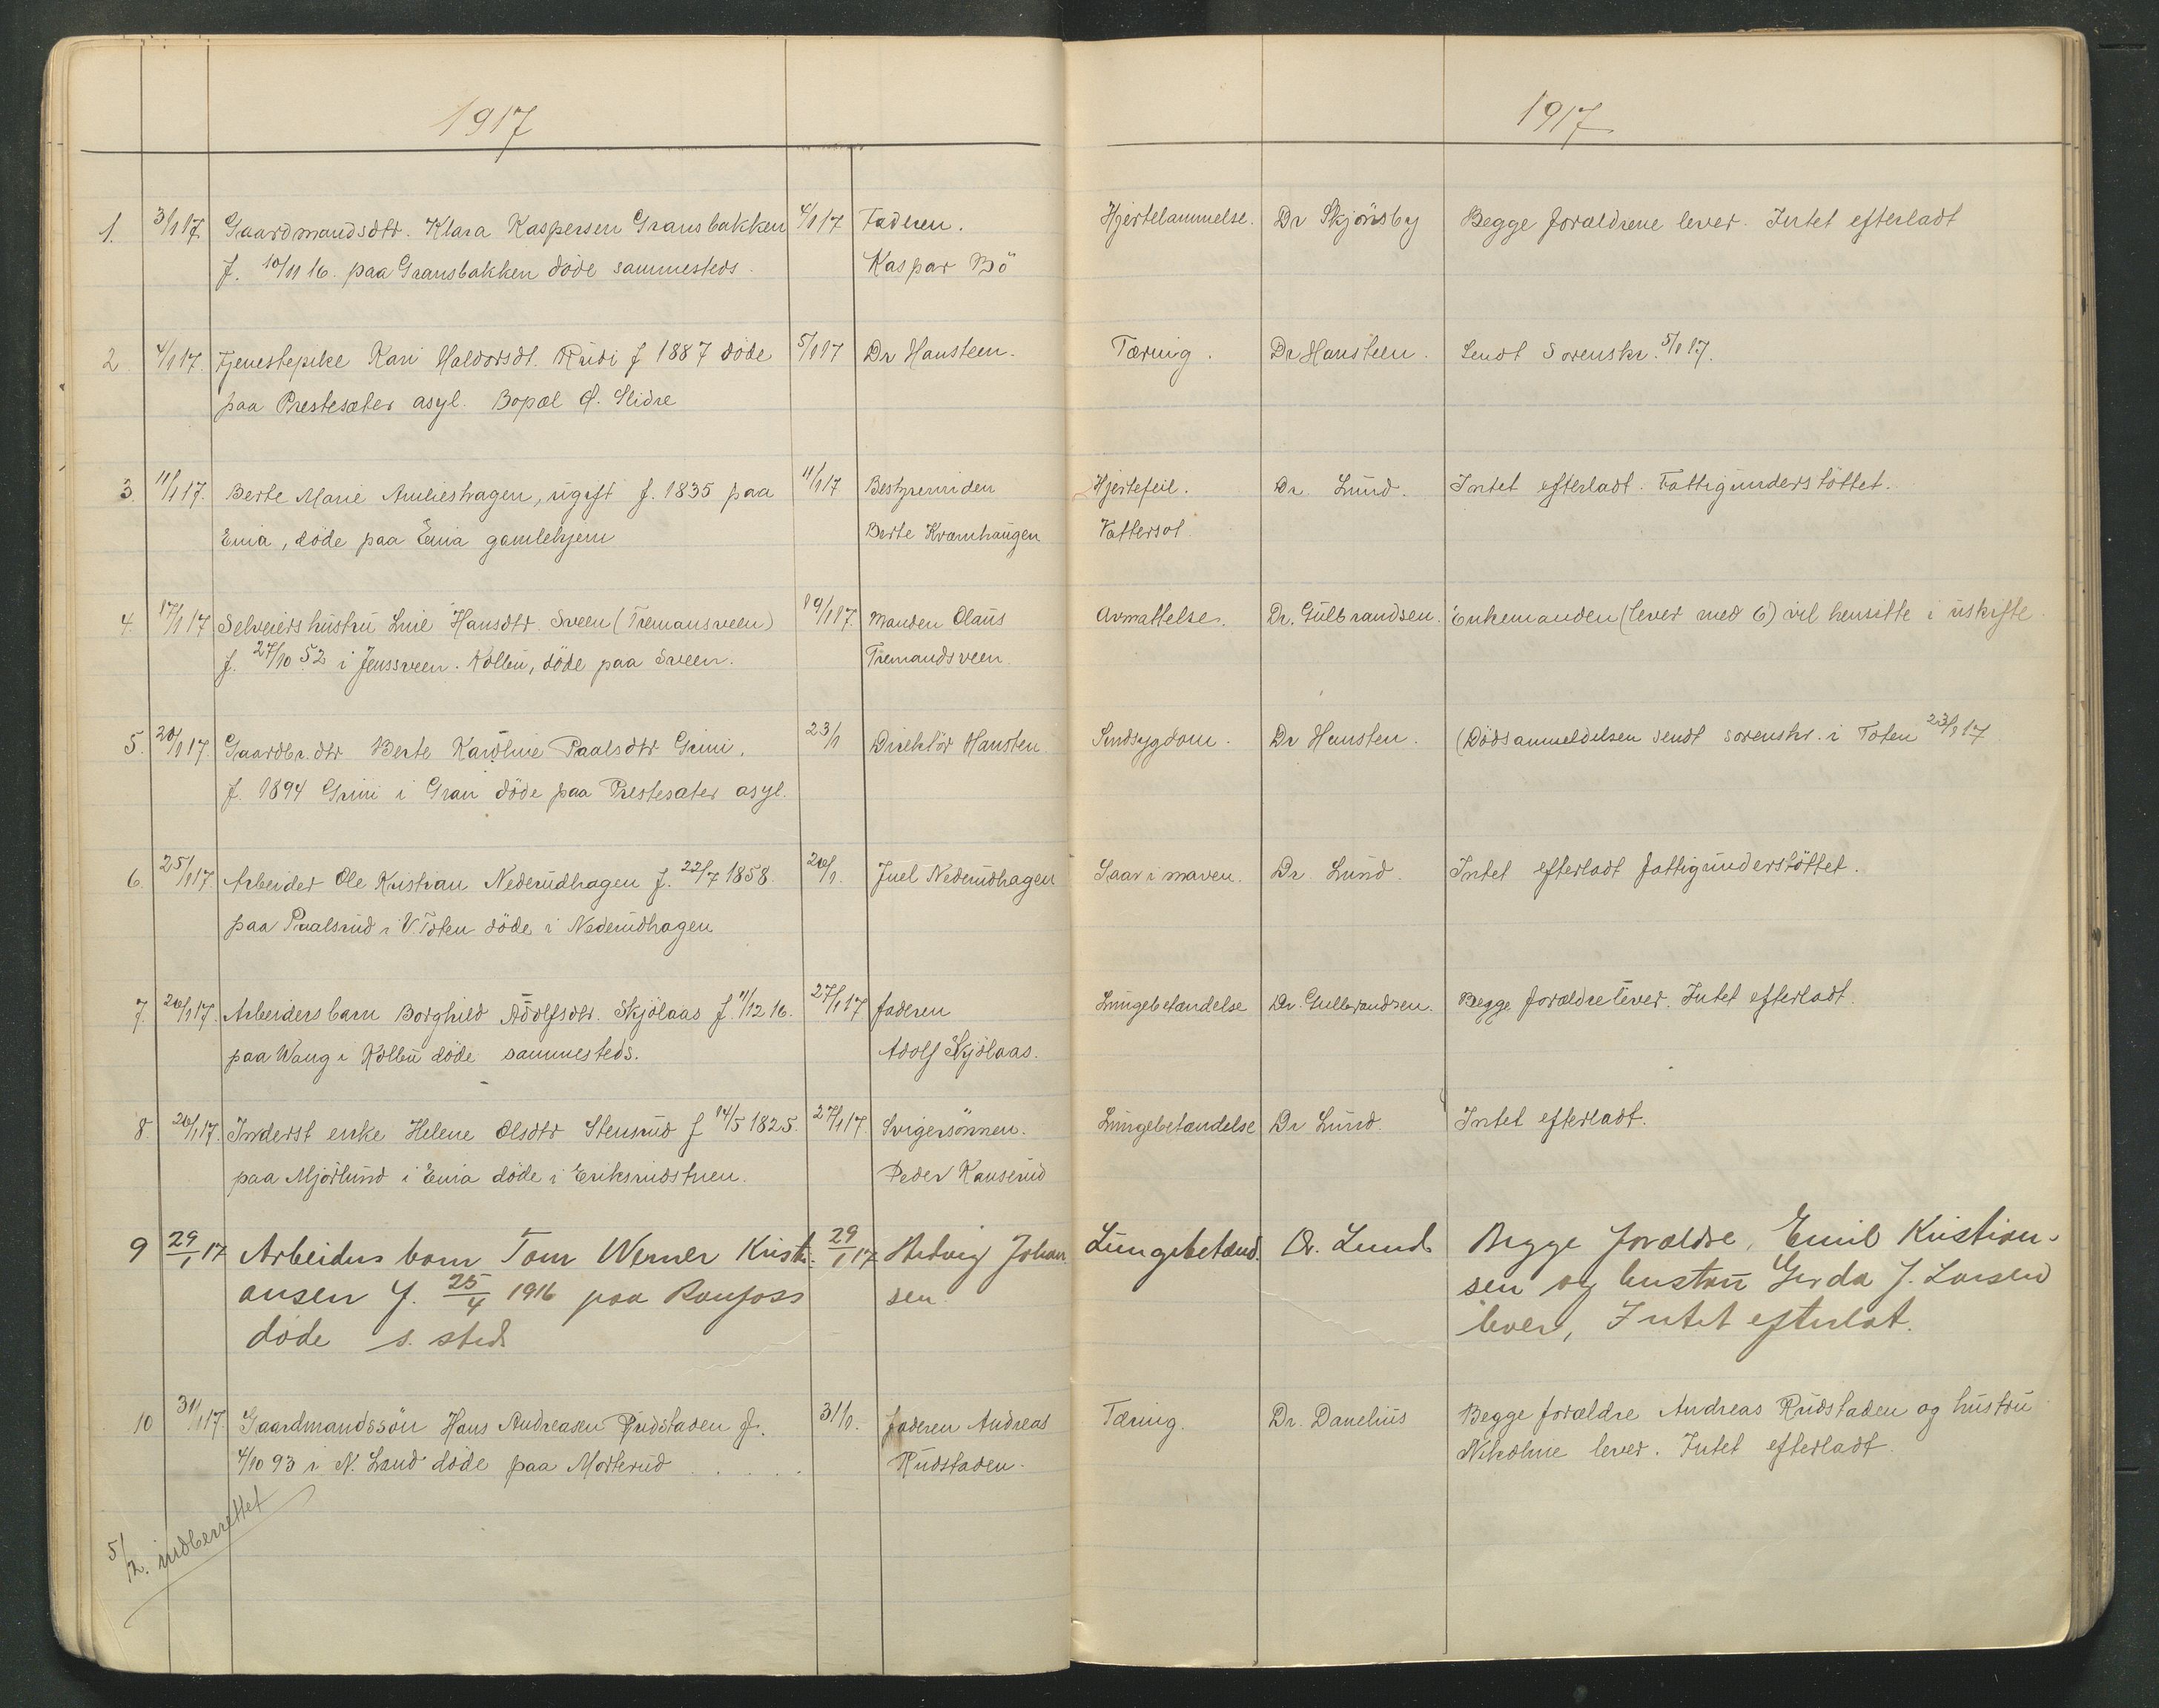 1917
1917
1. 3/1 17. Gaardmandsdtr. Klara Kaspersen Gransbakken 4/1 17 Faderen. Hjertelammelse. Dr Skjönsby Begge forældrene lever. Intet efterladt
f. 10/11 16. paa Gransbakken döde sammesteds. Kaspar Bö
2. 4/1 17. Tjenestepike Kari Haldorsdt. Rudi f 1887 döde 5/1 17 Dr Hansteen. Tæring. Dr Hansteen. Sendt Sorenskr. 5/1 17.
paa Prestesæter asyl. Bopæl Ö. Slidre
3. 11/1 17. Berte Marie Amlieshagen, ugift f. 1835 paa 11/1 17 Bestyrerinden Hjertefeil. Dr. Lund. Intet efterladt. Fattigunderstöttet.
Eina, döde paa Eina gamlehjem Berte Kvamhaugen Vattersot
4. 17/1 17 Selveiershustru Line Hansdtr. Sveen (Tremansveen) 19/1 17. Manden Olaus Avmattelse. Dr. Gulbrandsen. Enkemanden (lever med 6) vil hensitte i uskifte.
f. 27/10 52 i Jenssveen. Kolbu, döde paa Sveen. Tremandsveen.
5. 20/1 17. Gaardbr. dtr Berte Karoline Paalsdtr Grini. 23/1 Direktör Hansten Sindsygdom. Dr Hansten. (Dödsanmeldelsen sendt sorenskr. i Toten 23/1 17
f. 1894 Grini i Gran döde paa Prestesæter asyl.
6. 25/1 17 Arbeider Ole Kristian Nederudhagen f. 22/7 1858. 26/1. Juel Nederudhagen Saar i maven. Dr. Lund. Intet efterladt fattigunderstöttet.
paa Paalsrud i V. Toten döde i Nederudhagen
7. 26/1 17. Arbeidersbarn Borghild Adolfsdtr. Skjölaas f. 11/12 16. 27/1 17 faderen Lungebetændelse Dr. Gulbrandsen. Begge forældre lever. Intet efterladt.
paa Wang i Kolbu döde sammesteds. Adolf Skjölaas.
8. 26/1 17. Inderst enke Helene Olsdtr Stensrud f 14/5 1825. 27/1 17. Svigersönnen. Lungebetændelse Dr Lund. Intet efterladt.
paa Mjörlund i Eina döde i Eriksrudstuen. Peder Kauserud
9 29/1 17 Arbeiders barn Tom Werner Kristi- 29/1 17 Hedvig Johan Lungebetænd. Dr. Lund Begge forældre, Emil Kristian-
ansen f. 25/4 1916 paa Raufoss sen. sen og hustru Gerda f. Larsen
döde s. sted lever, Intet efterlat.
10 31/1 17. Gaardmandssön Hans Andreasen Rudstaden f. 31/1. faderen Andreas Tæring. Dr. Danelius Begge forældre Andreas Rudstaden og hustru
4/10 93 i N. Land döde paa Morterud Rudstaden. Nikoline lever. Intet efterladt.
5/2. indberrettet